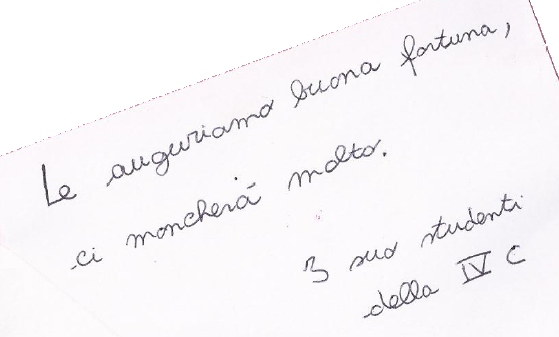 Le auguriamo buona fortuna,
ci mancherà molto.
I suoi studenti
della IV C